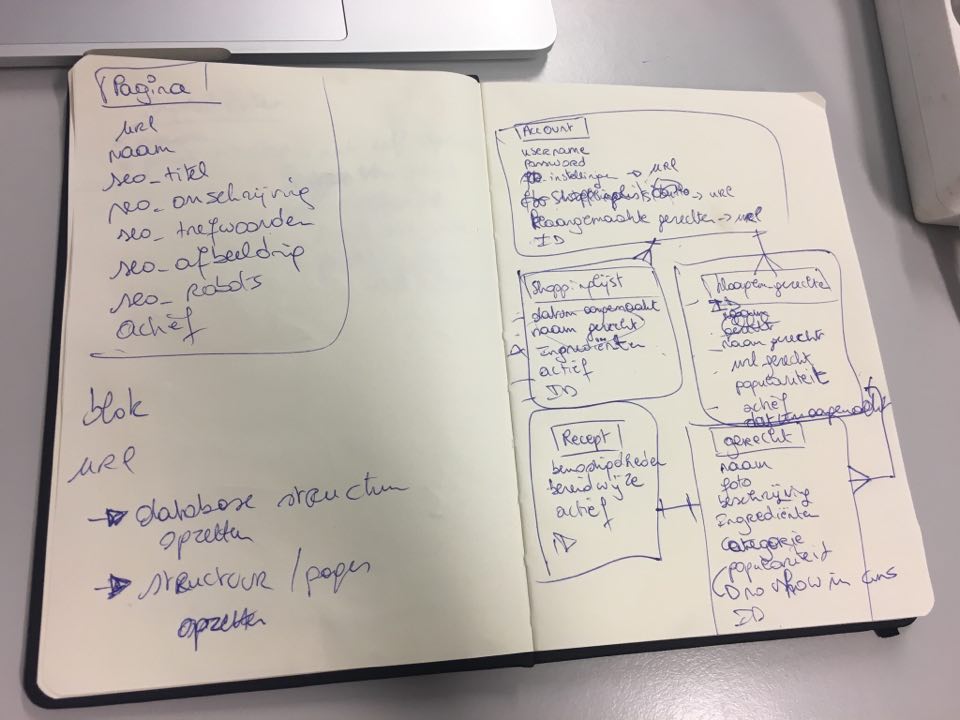 Pagina
url
naam
seo_titel
seo_omschrijving
seo_trefwoorden
seo_afbeelding
seo_robots
actief
blok
url
database structuur
opzetten
structuur / pages
opzetten
Account
username
password
instellingen → url
→ url
aangemaakte gerechten → url
ID
Shoppinglijst
datum aangemaakt
naam gerecht
Ingrediënten
actief
ID
naam gerecht
url gerecht
populariteit
actief
datum aangemaakt
Recept
benodigdheden
bereidwijze
actief
ID
gerecht
naam
foto
beschrijving
Ingrediënten
categorie
populariteit
show in
ID